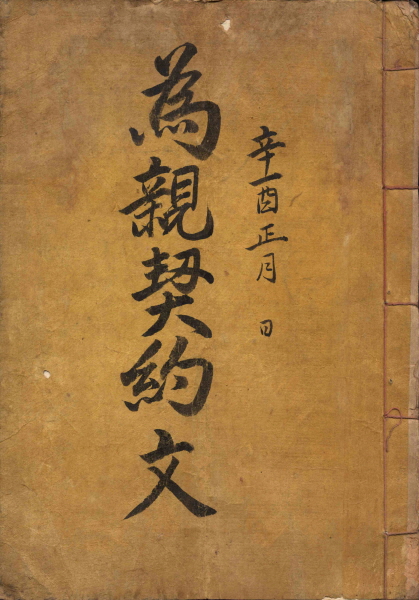 辛酉正月 日
為親契約文